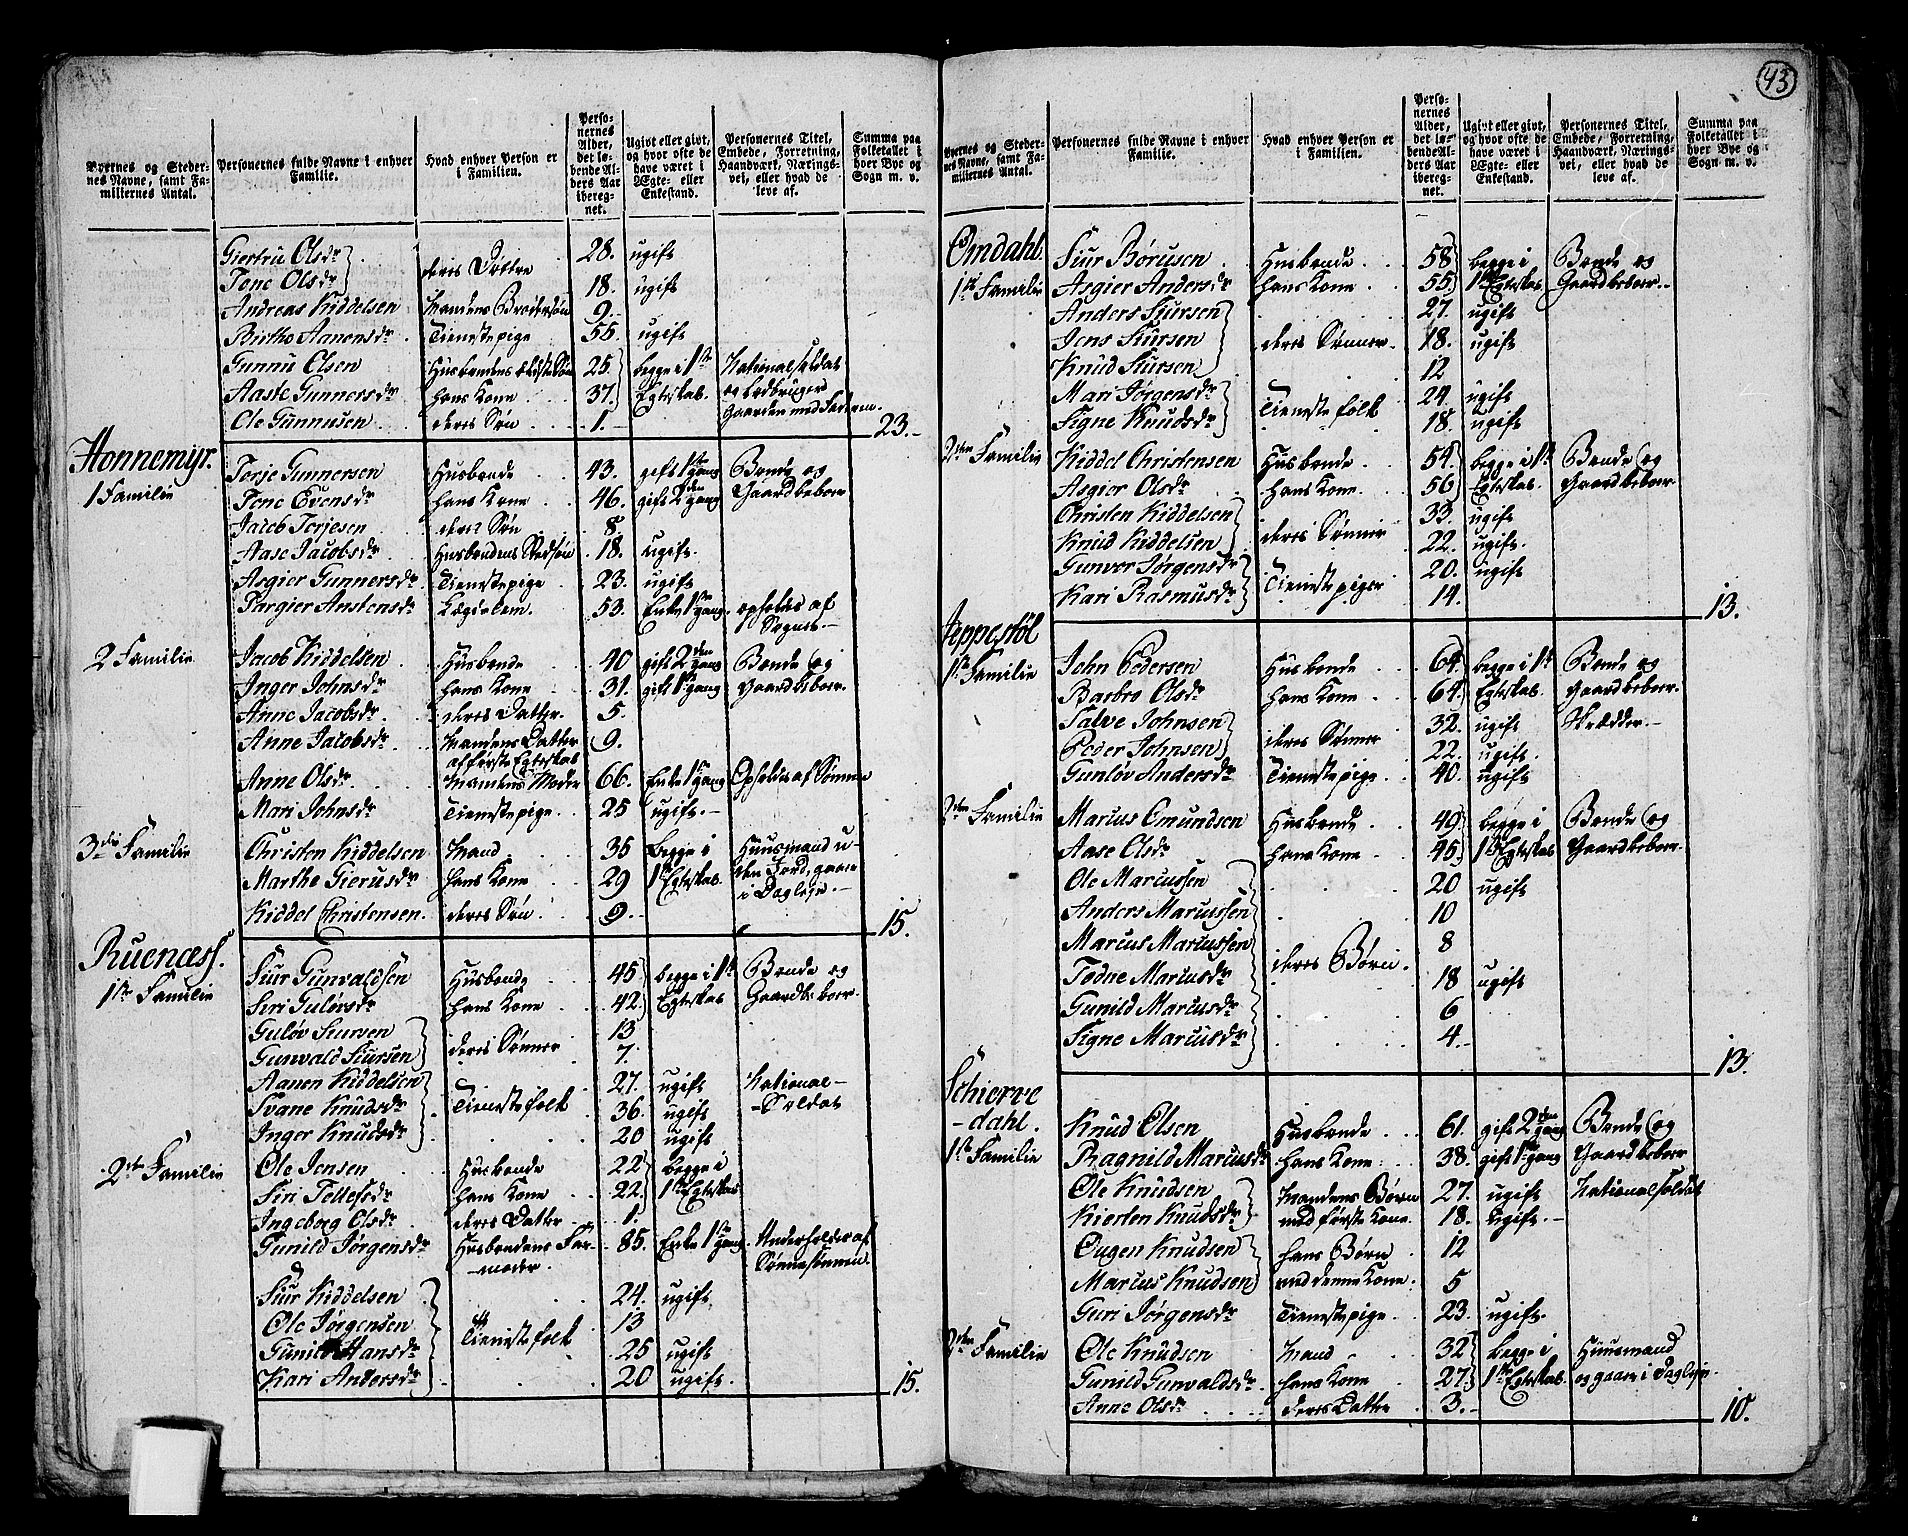 43
Byernes og Stedernes Navne, samt Familiernes Antal.
Personernes fulde Navne i enhver Familie.
Hvad enhver Person er i Familien.
Personernes Alder, det løbende Alders Aar iberegnet.
Ugivt eller givt, og hvor ofte de have været i Ægte- eller Enkestand.
Personernes Titel, Embede, Forretning, Haandværk, Næringsvei, eller hvad de leve af.
Summa paa Folketallet i hver Bye og Sogn m. v.
Giertru Olsdr 28. ugift
Tone Olsdr deres Døttre 18. ugift
Andreas Kiddelsen Mandens Brodersøn 9.
Birthe Aanensdr Tienestepige 55. ugift
Gunnu Olsen Husbondens eldste Søn 25. begge i 1ste Nationalsoldat
Aaste Gunnersdr hans Kone 37. Egteskab. og bruger
Ole Gunnusen deres Søn 1. Gaarden med Faderen. 23.
Honnemyr.
1 Familie
Terje Gunnersen Husbonde 43. gift 1ste gang Bonde og
Tone Evensdr hans Kone 46. gift 2den gang Gaardbeboer
Jacob Terjesen deres Søn 8
Aase Jacobsdr Husbondens 18. ugift.
Asgier Gunnersdr Tienestepige 23. ugift
Targier Anstensdr Lægdslem. 53. Enke 1ste gang. opholdes af
Sognet.
2 Familie
Jacob Kiddelsen Husbonde 40 gift 2den gang Bonde og
Inger Johnsdr hans Kone 31. gift 1ste gang Gaardbeboer.
Anne Jacobsdr deres Datter. 5.
Anne Jacobsdr. Mandens Datter 9.
af første Egteskab
Anne Olsdr. Mandens Moder 66. Enke 1ste gang Opholdes af Sønnen
Mari Johnsdr Tienestepige 25 ugift.
3die Familie
Christen Kiddelsen Mand 35 begge i Huusmand u-
Marthe Gierusdr hans Kone 29 1ste Egteskab. den Jord, gaaer
Kiddel Christensen. deres Søn 9. i Dagleje. 15.
Ruenæss.
1ste Familie
Siur Gunvaldsen Husbonde 45 begge i 1ste Bonde og
Siri Guløvsdr hans Kone 42. Egteskab Gaardbeboer.
Guløv Siursen 13
Gunvald Siursen deres Sønner 7.
Aanen Kiddelsen 27. ugift National-
Svane Knudsdr Tienestefolk 36. ugift -Soldat
Inger Knudsdr 20 ugift
2den Familie
Ole Jensen Husbonde 22 begge i
Siri Tellefsdr hans Kone 22. 1ste Egteskab
Ingeborg Olsdr deres Datter 1.
Gunild Jørgensdr Husbondens Far- 85. Enke 1ste gang. Underholdes af
moder. Sønnesønnen.
Siur Kiddelsen 24. ugift
Ole Jørgensen 13
Gunild Hansdr Tienestefolk 25 ugift
Kari Andersdr 20 ugift. 15.
Byernes og Stedernes Navne, samt Familiernes Antal.
Personernes fulde Navne i enhver Familie.
Hvad enhver Person er i Familien.
Personernes Alder, det løbende Alders Aar iberegnet.
Ugivt eller givt, og hvor ofte de have været i Ægte- eller Enkestand.
Personernes Titel, Embede, Forretning, Haandværk, Næringsvei, eller hvad de leve af.
Summa paa Folketallet i hver Bye og Sogn m. v.
Omdahl
1ste Familie
Siur Børusen Husbonde 58 begge i Bonde og
Asgier Andersdr hans Kone 55. 1ste Egteskab Gaardbeboer.
Anders Siursen 27. ugift
Jens Siursen deres Sønner 18. ugift
Knud Siursen 12
Mari Jørgensdr 24. ugift
Signe Knudsdr Tienestefolk 18. ugift
2den Familie
Kiddel Christensen Husbonde 54. begge i 1ste Bonde og
Asgier Olsdr hans Kone 56 Egteskab. Gaardbeboer.
Christen Kiddelsen 33. ugift
Knud Kiddelsen deres Sønner 22. ugift.
Gunver Jørgensdr 20. ugift
Kari Rasmusdr Tienestepiger 14. 13.
Jeppestøl
1ste Familie
John Pedersen Husbonde 64. begge i 1ste Bonde og
Barbro Olsdr hans Kone 64. Egteskab. Gaardbeboer
Salve Johnsen 32. ugift Skrædder.
Peder Johnsen deres Sønner 22. ugift.
Gunløv Andersdr Tienestepige 40. ugift
2den Familie
Marcus Emundsen Husbonde 49 begge i Bonde og
Aase Olsdr hans Kone 45. 1ste Egteskab Gaardbeboer.
Ole Marcussen 20 ugift
Anders Marcussen 10
Marcus Marcussen 8
Todne Marcusdr deres Børn. 18 ugift
Gunild Marcusdr 6
Signe Marcusdr 4. 13.
Schierve
-dahl.
1ste Familie
Knud Olsen Husbonde 61. gift 2den gang Bonde og
Ragnild Marcusdr hans Kone 38. gift 1ste gang Gaardbeboer
Ole Knudsen Mandens Børn 27. ugift Nationalsoldat
Kiersten Knudsdr med første Kone. 18. ugift.
Ougen Knudsen hans Børn 12
Marcus Knudsen med denne Kone. 5
Guri Jørgensdr Tienestepige 23. ugift.
2den Familie
Ole Knudsen Mand 32 begge i Huusmand
Gunild Gunvaldsdr. hans Kone 27. 1ste Egteskab. og gaaer i Dagleje.
Anne Olsdr deres Datter 3. 10.